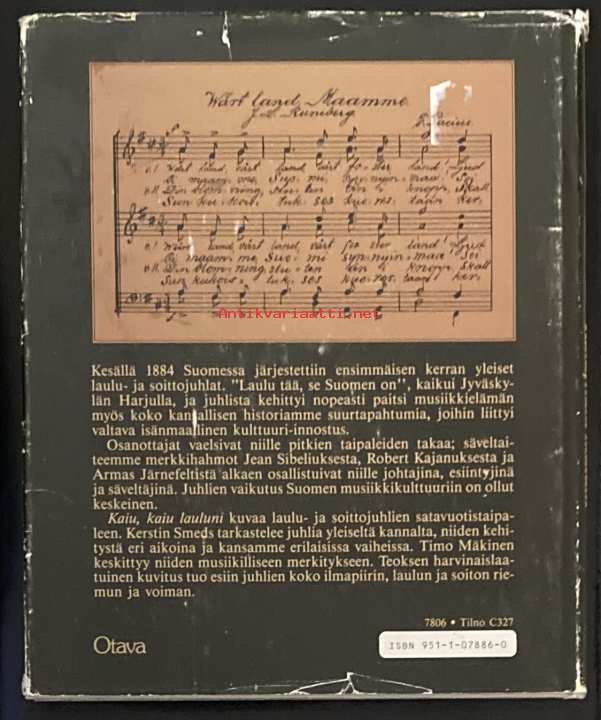 Wårt land, Maamme
J. L. Runeberg
F. Pacius
vårt land, vårt land, vårt fo-ster land! Ljud
maam-me, Suo-mi, syn-nyin-maa! Soi
Din blom-ning, slu-ten än i knopp, Skall
Sun kuk-kois-, luk-ses kuo-res-taan ker-
vårt land, vårt fo-ster land! Ljud
maam-me, Suo-mi syn-nyin-maa Soi
Din blom-ning slu-ten än i knopp, Skall
Sun kukois-, luk-ses kuo-res-taan ker-
Antikvariaatti.net
Kesällä 1884 Suomessa järjestettiin ensimmäisen kerran yleiset
laulu- ja soittojuhlat. "Laulu tää, se Suomen on", kaikui Jyväsky-
län Harjulla, ja juhlista kehittyi nopeasti paitsi musiikkielämän
myös koko kansallisen historiamme suurtapahtumia, joihin liittyi
valtava isänmaallinen kulttuuri-innostus.
Osanottajat vaelsivat niille pitkien taipaleiden takaa; säveltai-
teemme merkkihahmot Jean Sibeliuksesta, Robert Kajanuksesta ja
Armas Järnefeltistä alkaen osallistuivat niille johtajina, esiintyjinä
ja säveltäjinä. Juhlien vaikutus Suomen musiikkikulttuuriin on ollut
keskeinen.
Kaiu, kaiu lauluni kuvaa laulu- ja soittojuhlien satavuotistaipa-
leen. Kerstin Smeds tarkastelee juhlia yleiseltä kannalta, niiden kehi-
tystä eri aikoina ja kansamme erilaisissa vaiheissa. Timo Mäkinen
keskittyy niiden musiikilliseen merkitykseen. Teoksen harvinaislaa-
tuinen kuvitus tuo esiin juhlien koko ilmapiirin, laulun ja soiton rie-
mun ja voiman.
7806 • Tilno C327
Otava
ISBN 951-1-07886-0